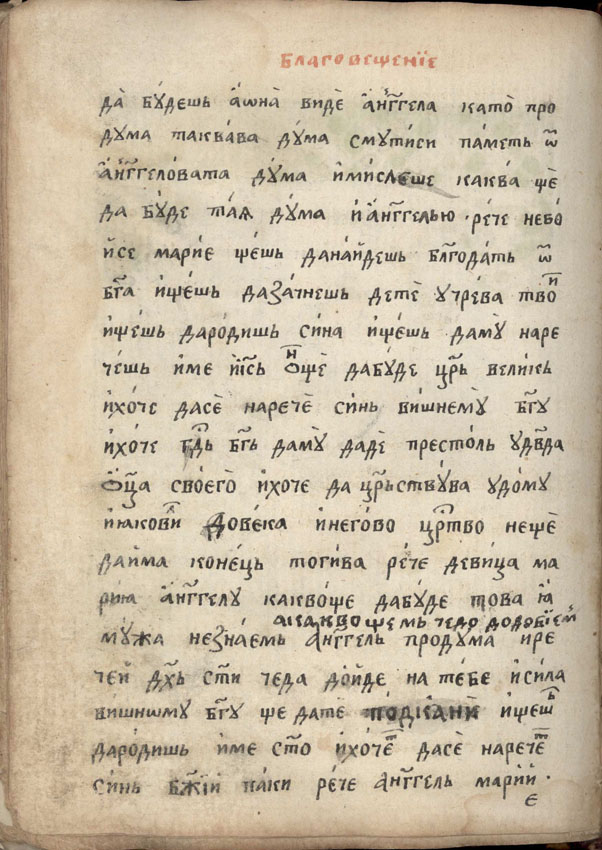 Благовещение
да̀ бу́дешь а̓ѡна̀ видѐ а҆нг҃гела като̀ про
дума таква́ва ду́ма смути́си па́меть ѿ
а҆нг҃гело́вата ду́ма и҆мислеше каква́ щѐ
да бу́де та́ꙗ ду́ма и҆ а҆нг҃гелью рече небо́
и҆се марі́е ще́шь дана́йдешь бл҃года́ть ѿ
бг҃а и҆ще́шь даза́чнешь детѐ у чре́ва твой
и҆ще́шь даро́дишь си́на и҆ще́шь даму̀ наре
че́шь и҆́ме і҆и҃сь Онщѐ дабу́де цр҃ь вели́кь
и҆хо́че дасѐ наречѐ си́нь ви́шнему̀ бг҃у
и҆хо́че гд҃ь бг҃ь даму̀ дадѐ престо́ль удв҃да
Ѻц҃а своего̀ и҆хоче да цр҃ьству́ва удо́му
и҆ꙗковй до ве́ка и҆него́во цр҃тво нещѐ
дайма коне́ць тоги́ва ре́че деви́ца ма
рию а҆нг҃гелу какво́ще дабу́де това ꙗ҆
а какво щемь чедо додобіем
му́жа незна́емь а҆нг҃гель проду́ма и҆ре
че́й дх҃ь ст҃и че́да до́йде на те́бе и҆си́ла
вишнѡму бг҃у ще датѐ подкани и҆ще́шь
даро́дишь и҆ме ст҃о и҆хо́чет дасѐ нарече́т
си́нь бж҃ій па́ки ре́че а҆нг҃гель марі́й
е